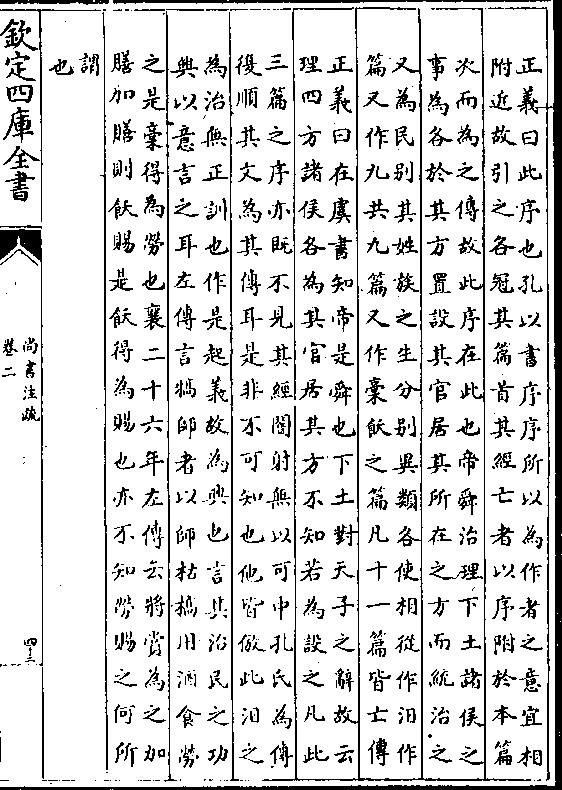 正義曰此序也孔以書序序所以為作者之意宜相
附近故引之各冠其篇首其經亡者以序附於本篇
次而為之傳故此序在此也帝舜治理下土諸侯之
事為各於其方置設其官居其所在之方而統治之
又為民别其姓族之生分别異類各使相從作汨作
篇又作九共九篇又作槀飫之篇凡十一篇皆亡傳
正義曰在虞書知帝是舜也下土對天子之辭故云
理四方諸侯各為其官居其方不知若為設之凡此
三篇之序亦既不見其經闇射無以可中孔氏為傳
復順其文為其傳耳是非不可知也他皆倣此汨之
為治無正訓也作是起義故為興也言其治民之功
興以意言之耳左傳言犒師者以師枯槁用酒食勞
之是槀得為勞也襄二十六年左傳云將賞為之加
膳加膳則飫賜是飫得為賜也亦不知勞賜之何所
謂
也
欽定四庫全書
尚書注疏
卷二
四三